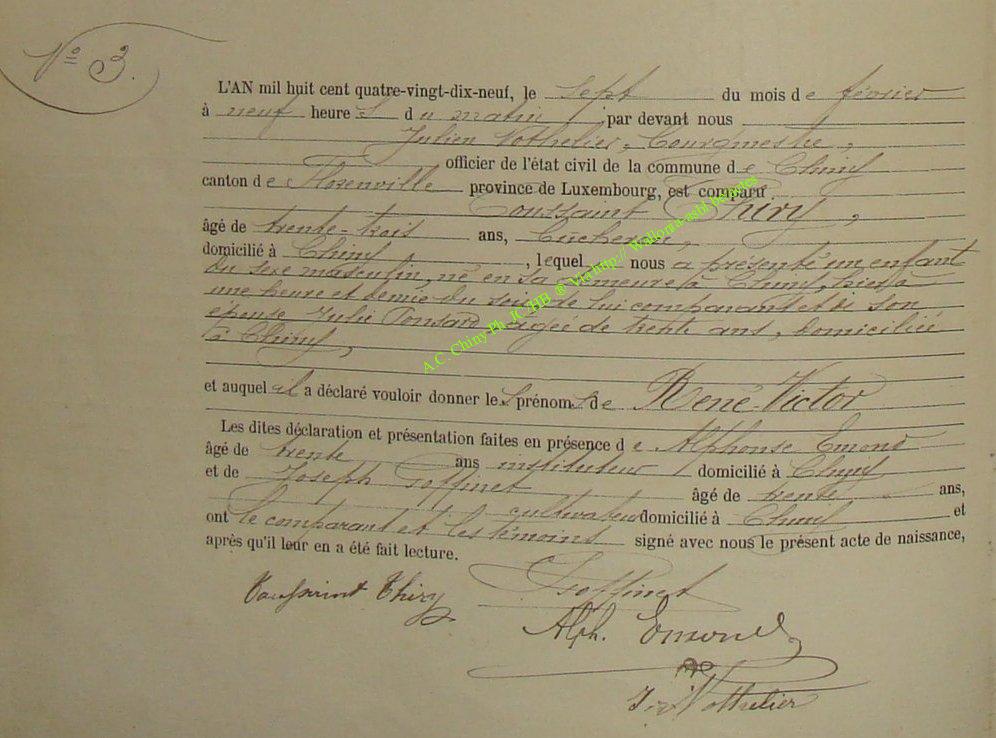 N° 3.
L'AN mil huit cent quatre-vingt-dix-neuf, le sept du mois de février
à neuf heures du matin, par devant nous
Julien Nothelier, Bourgmestre,
officier de l'état civil de la commune de Chiny
canton de Florenville province de Luxembourg, est comparu
Toussaint Thiry,
âgé de trente-trois ans, bûcheron,
domicilié à Chiny, lequel nous a présenté un enfant
du sexe masculin, né en sa demeure à Chiny, hier à
une heure et demie du soir de lui comparant et de son
épouse Julie Ponsard âgée de trente ans, domiciliée
à Chiny,
et auquel il a déclaré vouloir donner les prénoms de René-Victor
Les dites déclaration et présentation faites en présence de Alphonse Emond
âgé de trente ans instituteur domicilié à Chiny
et de Joseph Goffinet âgé de trente ans,
cultivateur domicilié à Chiny et
ont le comparant et les témoins signé avec nous le présent acte de naissance,
après qu'il leur en a été fait lecture.
Toussaint Thiry
J Goffinet
Alph. Emond
J. Nothelier
A.C. Chiny-Ph JC HB @ Via http:// Wallonia-asbl.be